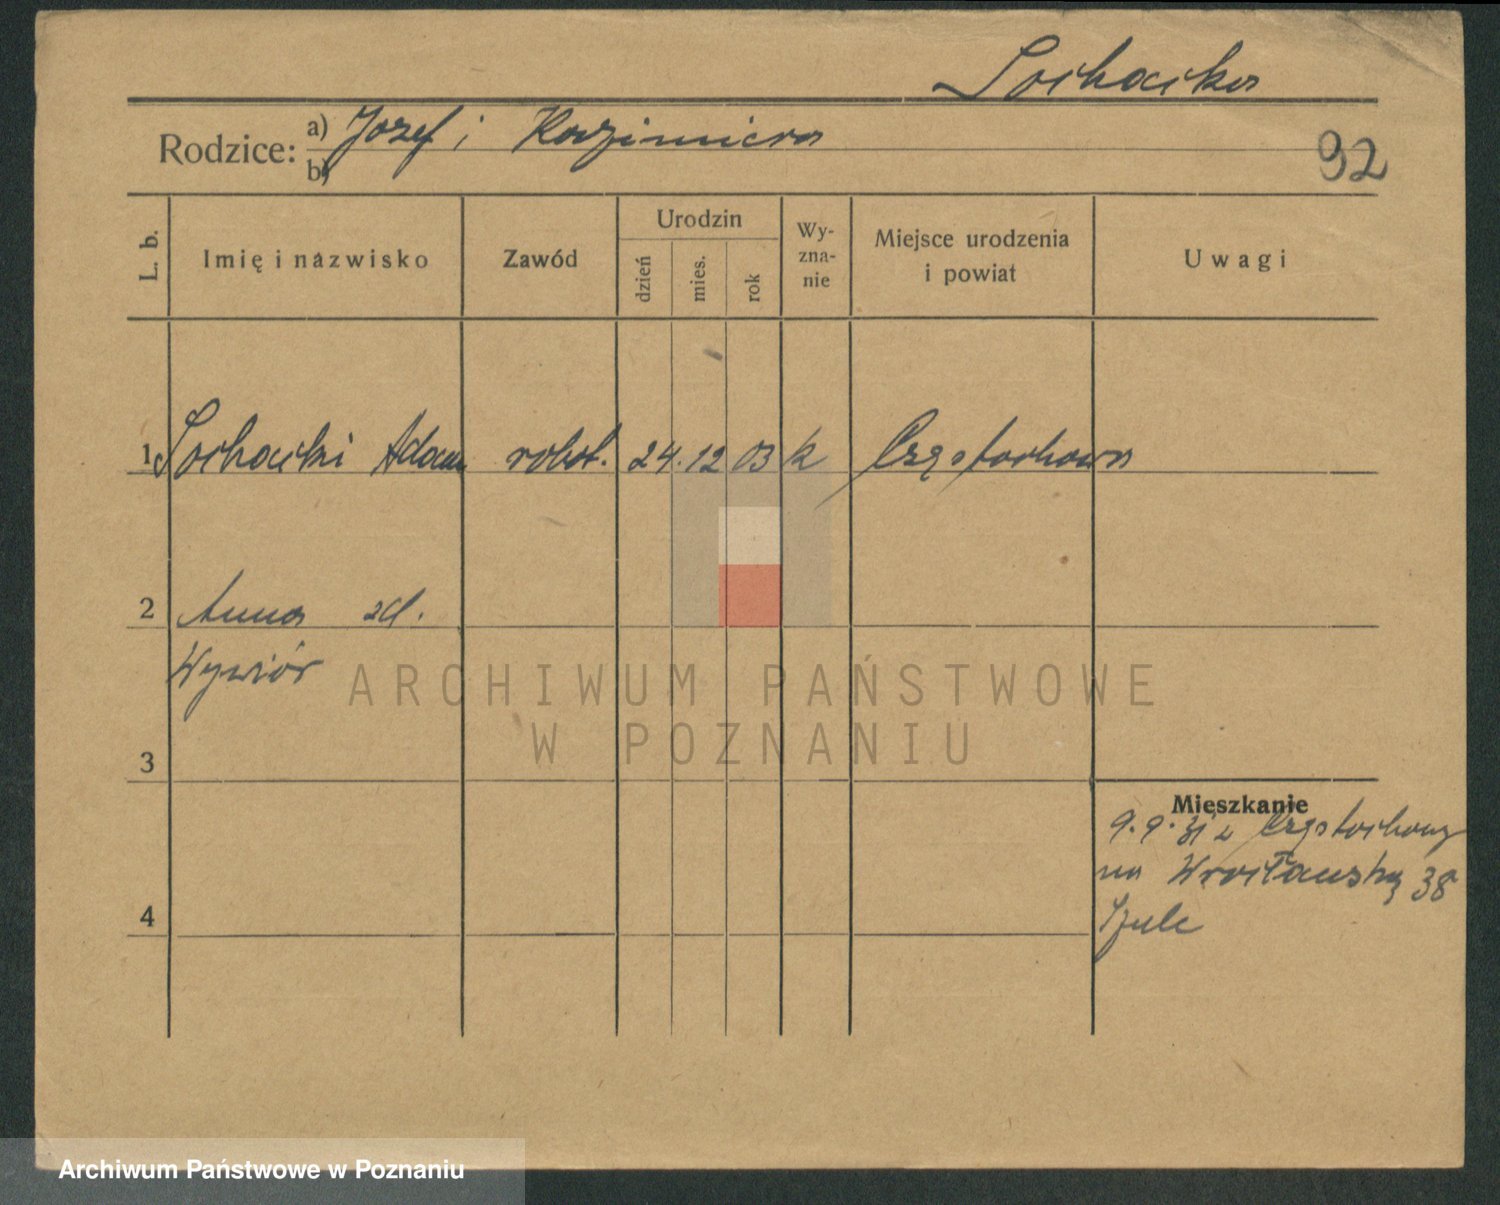 Sochacka
Rodzice: a) Józef i Kazimiera
b)
92
L. b.
Imię i nazwisko
Zawód
Urodzin
dzień
mies.
rok
Wy-
zna-
nie
Miejsce urodzenia
i powiat
Uwagi
1 Sochacki Adam robot. 24. 12 03 k Częstochowa
2 Anna zd.
Wywiór
ARCHIWUM PAŃSTWOWE
W POZNANIU
3
Mieszkanie
9.9.31 z Częstochowy
na Wrocławską 38
Szulc
4
Archiwum Państwowe w Poznaniu